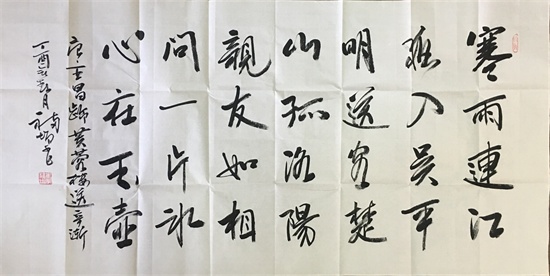 寒雨連江
夜入吳平
明送客楚
山孤洛陽
親友如相
問一片冰
心在玉壺
唐王昌齡芙蓉樓送辛漸
丁酉 月